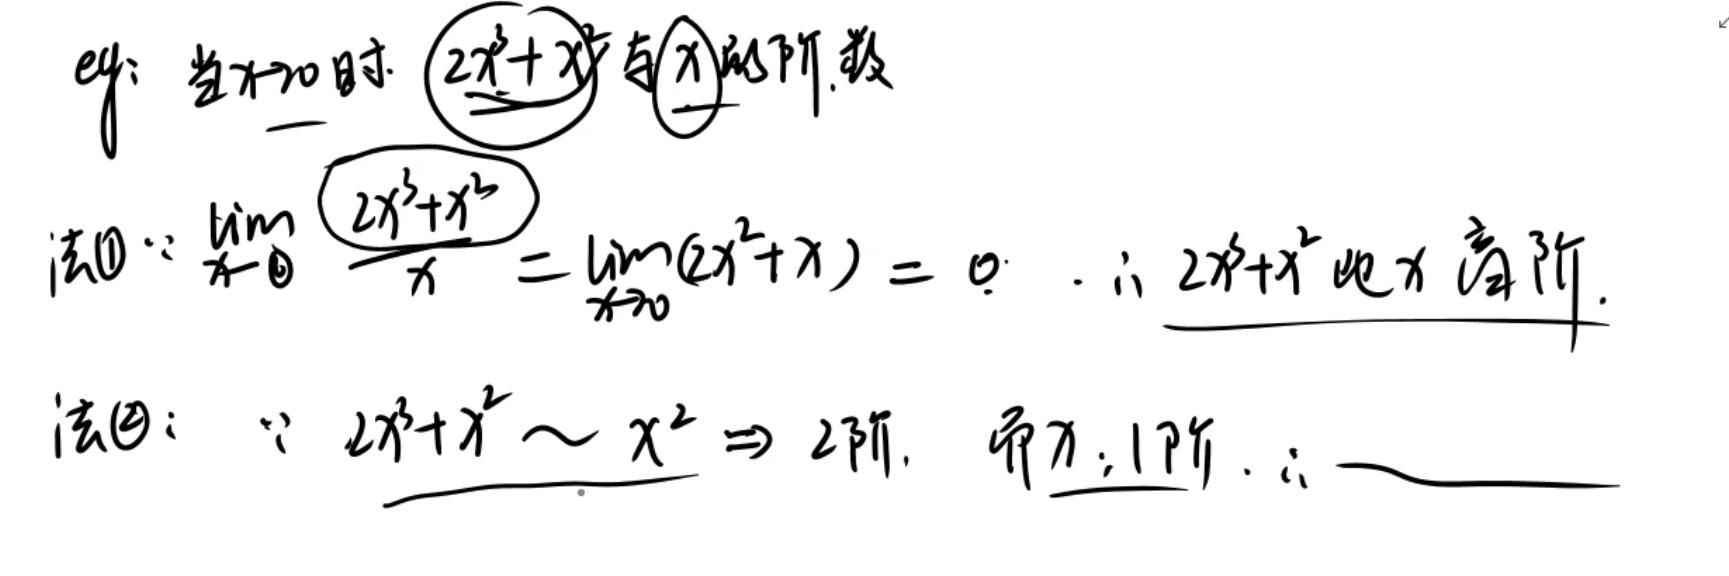 eg: 当x→0时. 2x³+x² 与 x 的阶数
法① ∵ lim x→0 (2x³+x²)/x = lim x→0 (2x²+x) = 0. ∴ 2x³+x² 比 x 高阶.
法②: ∵ 2x³+x² ~ x² ⇒ 2阶. 而x:1阶. ∴